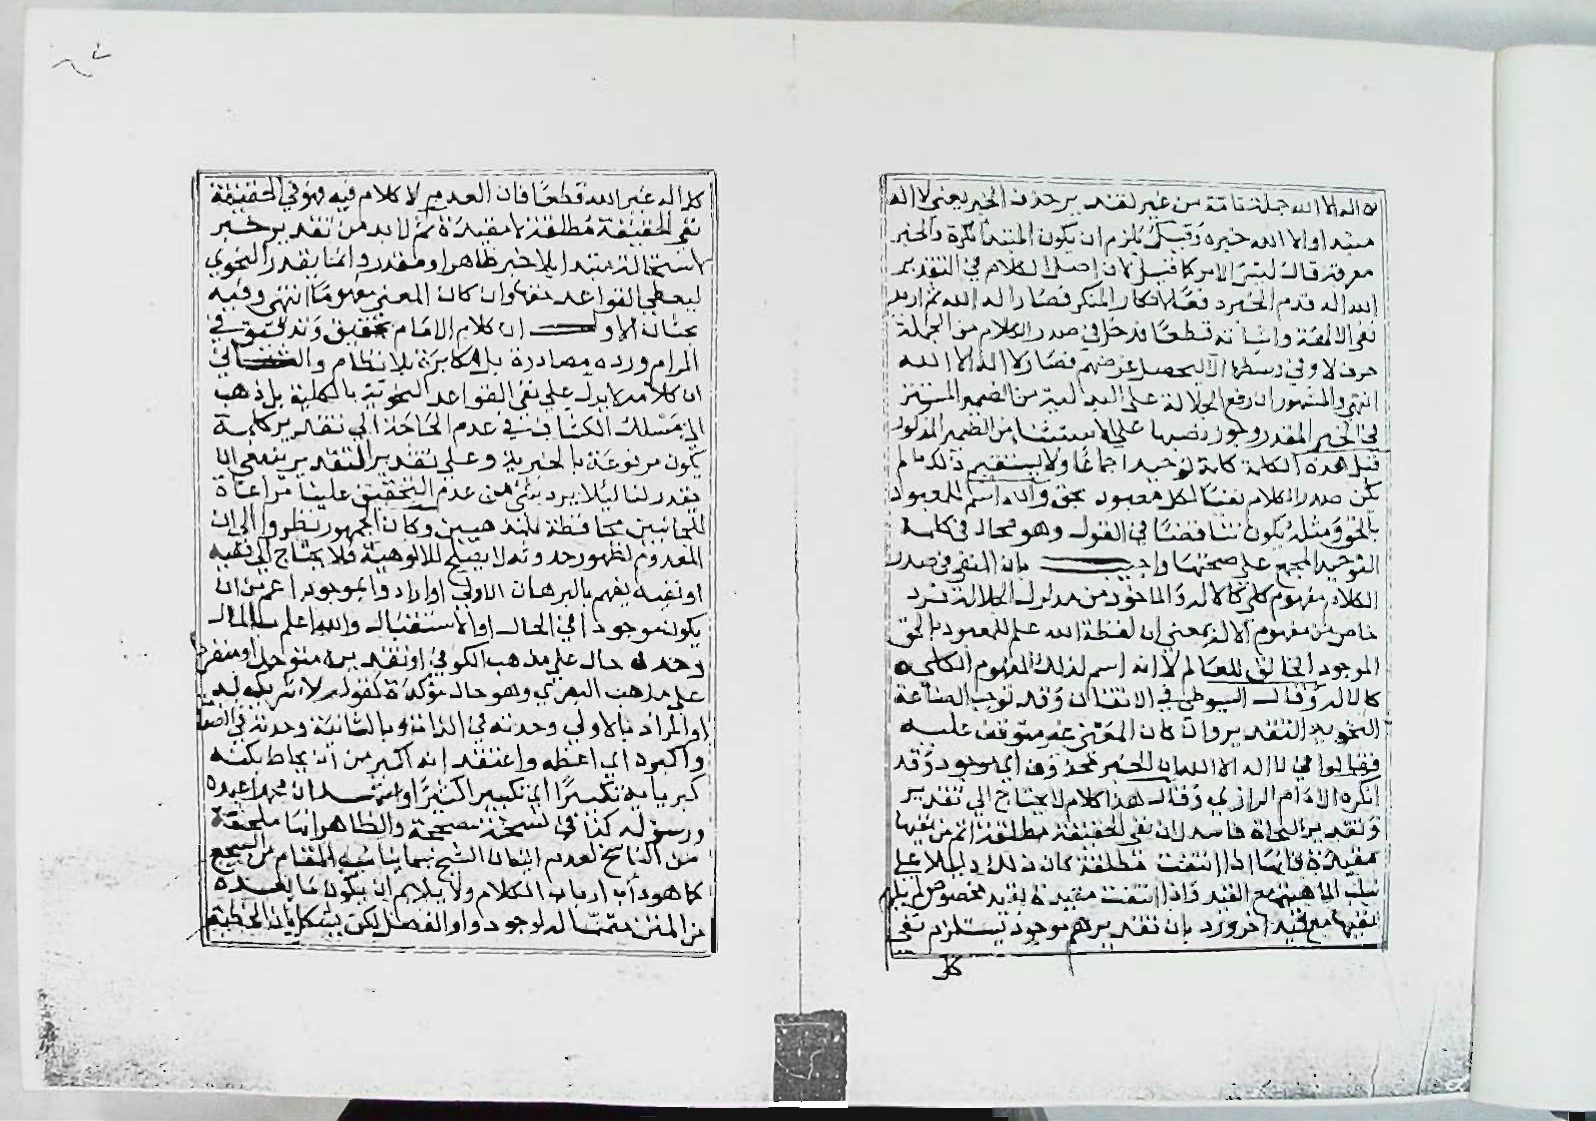 لا اله الا الله جملة تامة من غير تقدير حذف الخبر يعني لا اله
مبتدا والا الله خبره وقيل يلزم ان يكون المبتدا نكرة والخبر
معرفة قال ليس الامر كما قيل لان اصل الكلام في التقدير
الله اله قدم الخبر دفعا لانكار المنكر فصار اله الله ثم اريد
نفي الالهة واثباته قطعا فدخل في صدر الكلام من الجملة
حرف لا وفي وسطها الا ليحصل غرضهم فصار لا اله الا الله
انتهى والمشهور ان رفع الجلالة على البدلية من الضمير المستتر
في الخبر المقدر ويجوز نصبها على الاستثناء من الضمير المذكور
قيل هذه الكلمة كلمة توحيد اجماعا ولا يستقيم ذلك ما لم
يكن صدر الكلام نفيا لكل معبود بحق والله اسم للمعبود
بالحق ومثله يكون تناقضا في القول وهو محال في كلمة
التوحيد المجمع على صحتها واجيب بان النفي في صدر
الكلام مفهوم كلي كالاله والماخوذ من مدلول الجلالة فرد
خاص من مفهوم الاله بمعنى ان لفظة الله علم للمعبود بالحق
الموجود الخالق للعالم لا انه اسم لذلك المفهوم الكلي
كالاله وقال السيوطي في الاتقان وقد توجب الصناعة
النحوية التقدير وان كان المعنى غير متوقف عليه
فقالوا في لا اله الا الله ان الخبر محذوف اي موجود وقد
انكره الامام الرازي وقال هذا كلام لا يحتاج الى تقدير
وتقدير النحاة فاسد لان نفي الحقيقة مطلقة اتم من نفيها
مقيدة فانها اذا انتفت مطلقة كان ذلك دليلا على
سلب الماهية مع القيد واذا انتفت مقيدة بقيد مخصوص لم يلزم
نفيها مع قيد اخر ورد بان تقديرهم موجود يستلزم نفي
كل
كل اله غير الله قطعا فان العدم لا كلام فيه فهو في الحقيقة
نفي الحقيقة مطلقة لا مقيدة ثم لا بد من تقدير خبر
لاستحالة مبتدا بلا خبر ظاهرا او مقدر وانما يقدر النحوي
ليعطي القواعد حقها وان كان المعنى مفهوما انتهى وفيه
بحثان الاول ان كلام الامام تحقيق وتدقيق في
المرام ورده مصادرة بل مكابرة بلا نظام والثاني
ان كلامه لا يدل على نفي القواعد النحوية بالكلية بل ذهب
الى مسلك الكشاف في عدم الحاجة الى تقدير كلمة
يكون مرفوعة بالخبرية وعلى تقدير التقدير ينبغي ان
يقدر لنا ليلا يرد بشيء من عدم التحقيق علينا مراعاة
للجانبين محافظة للمذهبين وكان الجمهور نظروا الى ان
المعدوم لظهور حدوثه لا يصلح للالوهية فلا يحتاج الى نفيه
او نفيه يفهم بالبرهان الاولى او ارادوا بموجود اعم من ان
يكون موجودا في الحال او الاستقبال والله اعلم بالحال
وحده حال على مذهب الكوفي او تقديره متوحدا او منفردا
على مذهب البصري وهو حال مؤكدة كقوله لا شريك له
او المراد بالاولى وحدته في الذات وبالثانية وحدته في الصفات
واكبره اي اعظمه واعتقد انه اكبر من ان يحاط بكنه
كبريايه تكبيرا اي تكبيرا كثيرا واشهد ان محمدا عبده
ورسوله كذا في نسخة مصححة والظاهر انها ملحقة
من الناسخ لعدم اتيان الشيخ بما يناسب المقام من السجع
كما هو داب ارباب الكلام ولا يلايم ان يكون ما بعده
من المتن متمما له لوجود واو الفصل لكن يشكل بان الخطبة